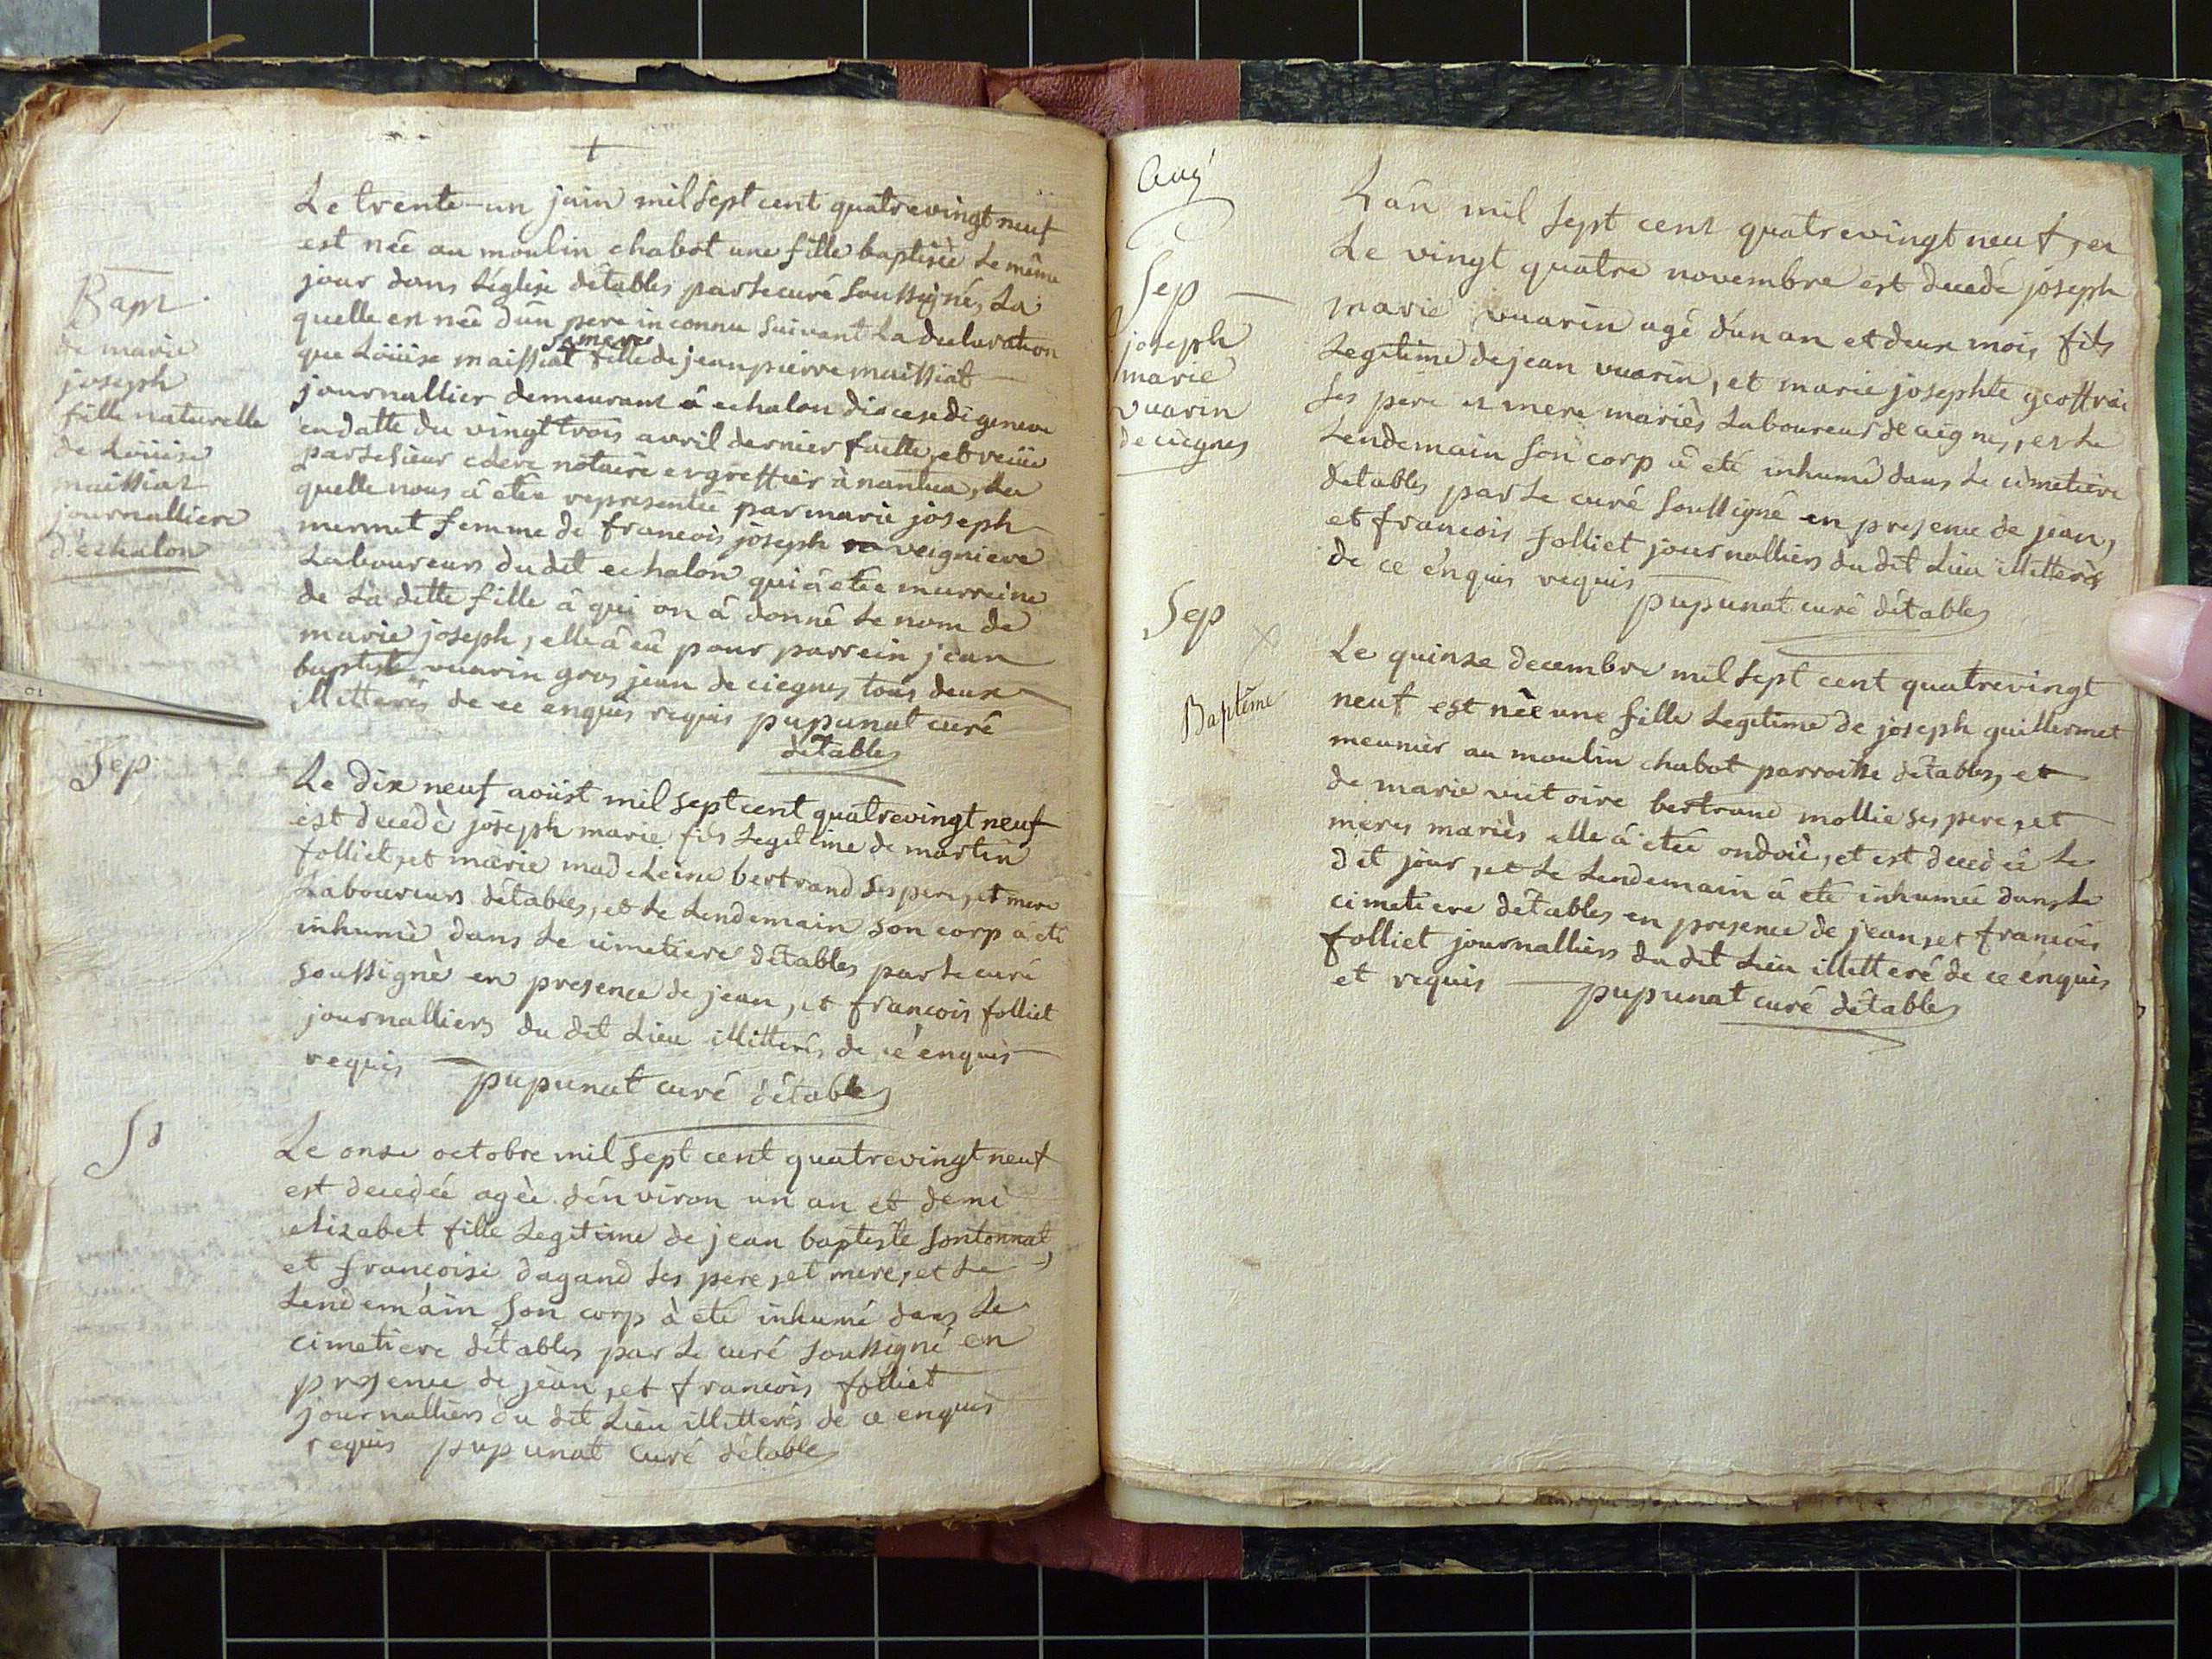 Bapt
de marie
joseph
fille naturelle
de Loüise
maissiat
journalliere
d'echalon
Le trente-un juin mil sept cent quatrevingt neuf
est née au moulin chabot une fille baptisèe le même
jour dans L'église détables par le curé soussigné, La
quelle est née d'un pere inconnu suivant La declaration
que Loüise maissiat sa mere fille de jean pierre maissiat
journallier demeurant â echalon diocese de geneve
en datte du vingt trois avril dernier faitte, et reçüe
par le sieur clerc notaire et greffier à nantua, La
quelle nous â etée representée par marie joseph
mermet femme de francois joseph veigniere
Laboureurs du dit echalon qui â etée marreine
de La ditte fille â qui on â donné le nom de
marie joseph, elle â eû pour parrein jean
baptiste vuarin gros jean de ciegnes tous deux
illitterés de ce enquis requis pupunat curé
détables
Sep
Le dix neuf aoûst mil sept cent quatrevingt neuf
est decedè joseph marie fils Legitime de martin
folliet, et marie madeleine bertrand ses pere, et mere
Laboureurs détables, et le Lendemain son corp a eté
inhumè dans le cimetiere détables par le curé
soussignè en presence de jean, et francois folliet
journalliers du dit Lieu illitterés de ce enquis
requis pupunat curé détables
Le onse octobre mil sept cent quatrevingt neuf
est decedée agèe d'environ un an et demi
elizabet fille Legitime de jean baptiste sontonnat,
et francoise dagand ses pere, et mere, et Le
Lendemain son corp à eté inhumé dans Le
cimetiere détables par le curé soussigné en
presence de jean, et francois folliet
journalliers du dit Lieu illitterés de ce enquis
requis pupunat curé détables
Sep
joseph
marie
vuarin
de ciegnes
L'an mil sept cent quatrevingt neuf, et
Le vingt quatre novembre est decedé joseph
marie vuarin agé d'un an et deux mois fils
Legitime de jean vuarin, et marie josephte geoffrai
ses pere et mere mariès Laboureurs de ciegnes, et Le
Lendemain son corp â eté inhumé dans Le cimetiere
détables par le curé soussigné en presence de jean,
et francois folliet journalliers du dit Lieu illitterés
de ce enquis requis pupunat curé détables
Sep
Baptême
Le quinse decembre mil sept cent quatrevingt
neuf est nèe une fille Legitime de joseph guillermet
meunier au moulin chabot parroisse détables, et
de marie victoire bertrand mollie ses pere, et
meres mariès elle â etée ondoiè, et est decedée Le
dit jour, et Le Lendemain â eté inhumée dans Le
cimetiere détables en presence de jean, et francois
folliet journalliers du dit Lieu illitteré de ce enquis
et requis pupunat curé détables